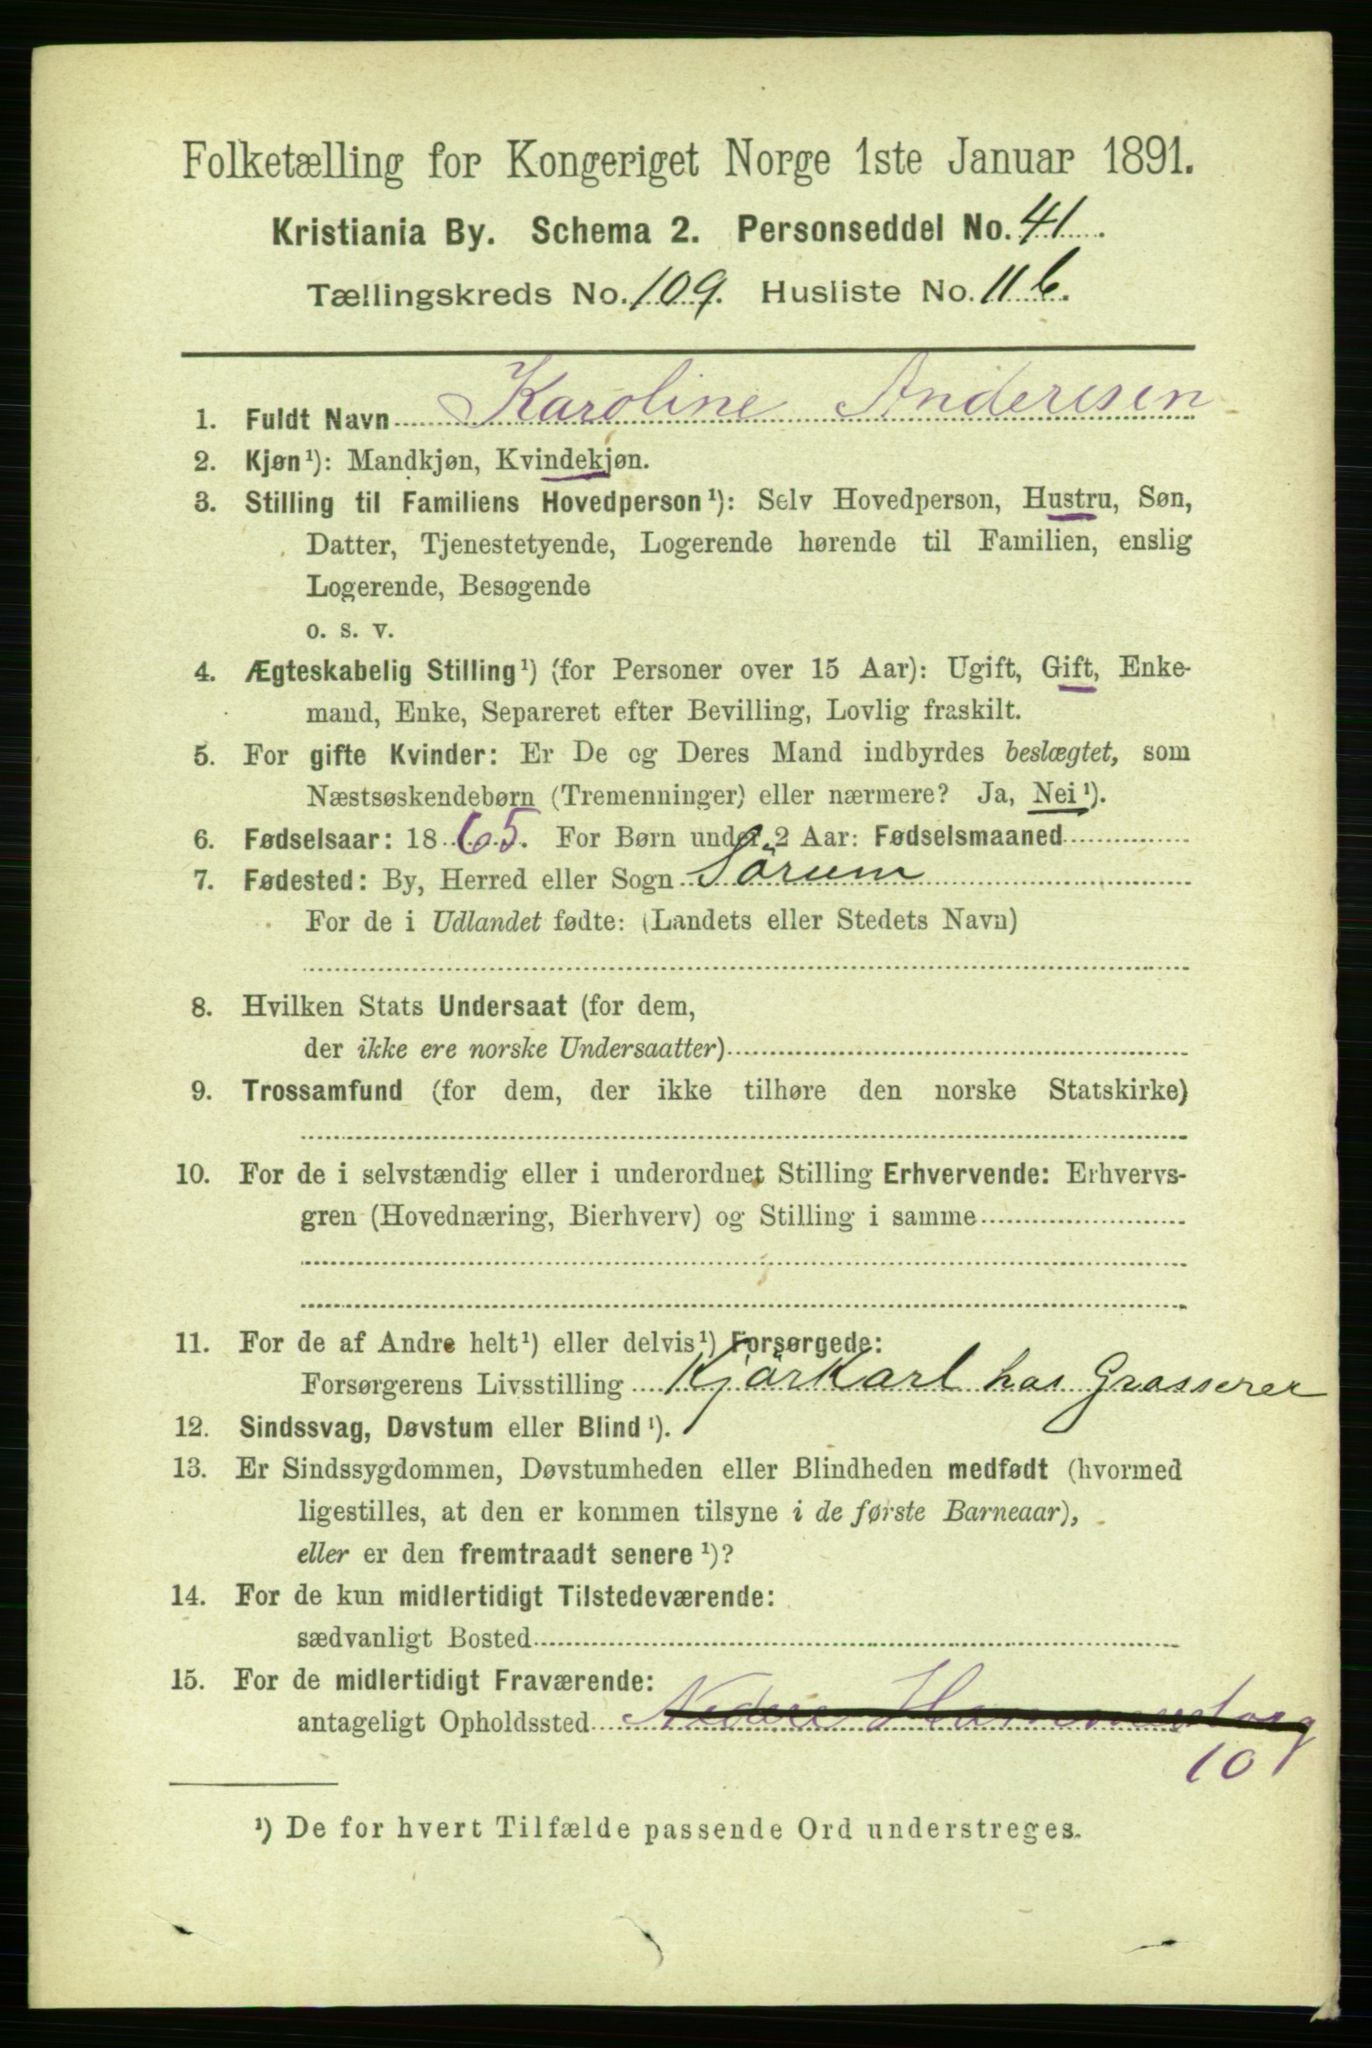 Folketælling for Kongeriget Norge 1ste Januar 1891.
Kristiania By. Schema 2. Personseddel No. 41.
Tællingskreds No. 109. Husliste No. 11 b.
1. Fuldt Navn Karoline Anderesen
2. Kjøn¹): Mandkjøn, Kvindekjøn.
3. Stilling til Familiens Hovedperson¹): Selv Hovedperson, Hustru, Søn,
Datter, Tjenestetyende, Logerende hørende til Familien, enslig
Logerende, Besøgende
o. s. v.
4. Ægteskabelig Stilling¹) (for Personer over 15 Aar): Ugift, Gift, Enke-
mand, Enke, Separeret efter Bevilling, Lovlig fraskilt.
5. For gifte Kvinder: Er De og Deres Mand indbyrdes beslægtet, som
Næstsøskendebørn (Tremenninger) eller nærmere? Ja, Nei¹).
6. Fødselsaar: 1865. For Børn under 2 Aar: Fødselsmaaned
7. Fødested: By, Herred eller Sogn Sörum
For de i Udlandet fødte: (Landets eller Stedets Navn)
8. Hvilken Stats Undersaat (for dem,
der ikke ere norske Undersaatter)
9. Trossamfund (for dem, der ikke tilhøre den norske Statskirke)
10. For de i selvstændig eller i underordnet Stilling Erhvervende: Erhvervs-
gren (Hovednæring, Bierhverv) og Stilling i samme
11. For de af Andre helt¹) eller delvis¹) Forsørgede:
Forsørgerens Livsstilling Kjörkarl hos Grosserer
12. Sindssvag, Døvstum eller Blind¹).
13. Er Sindssygdommen, Døvstumheden eller Blindheden medfødt (hvormed
ligestilles, at den er kommen tilsyne i de første Barneaar),
eller er den fremtraadt senere¹)?
14. For de kun midlertidigt Tilstedeværende:
sædvanligt Bosted
15. For de midlertidigt Fraværende:
antageligt Opholdssted Nedere Hammersborg
10
¹) De for hvert Tilfælde passende Ord understreges.